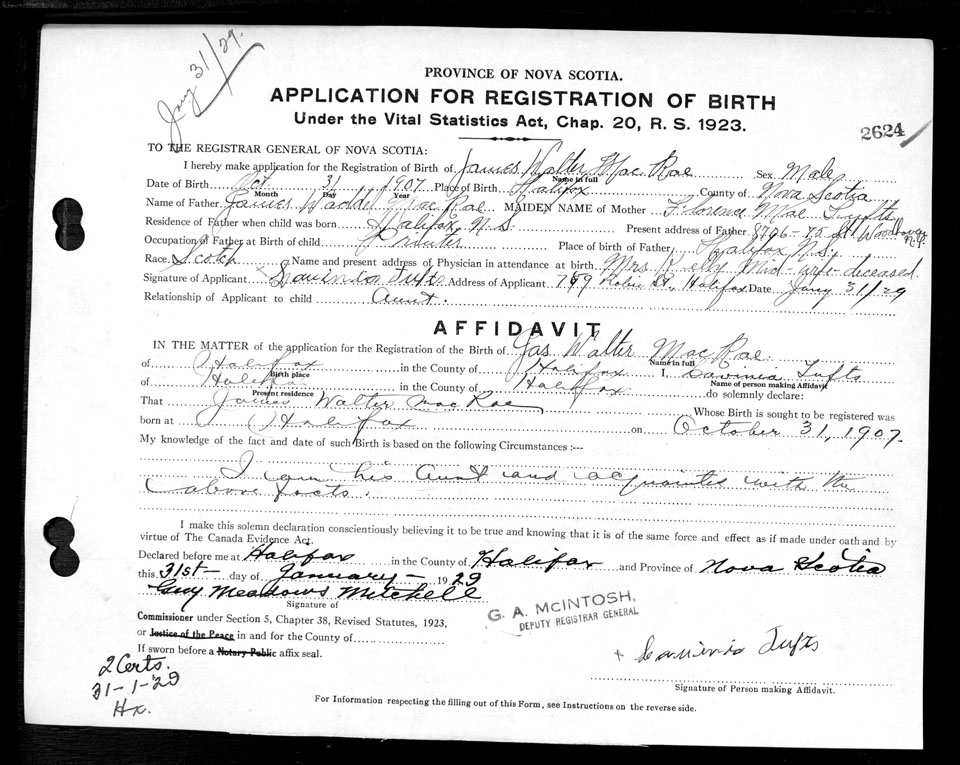 Jany 31/29.
PROVINCE OF NOVA SCOTIA.
APPLICATION FOR REGISTRATION OF BIRTH
Under the Vital Statistics Act, Chap. 20, R. S. 1923.
2624
TO THE REGISTRAR GENERAL OF NOVA SCOTIA:
I hereby make application for the Registration of Birth of James Walter Mac Rae Sex Male
Name in full
Date of Birth Oct 31 1907 Place of Birth Halifax County of Nova Scotia
Month Day Year
Name of Father James Mac Rae MAIDEN NAME of Mother Florence Mae Tufts
Residence of Father when child was born Halifax, N.S. Present address of Father 8796-75 St Woodhaven N.Y.
Occupation of Father at Birth of child Printer Place of birth of Father Halifax N.S.
Race. Scotch Name and present address of Physician in attendance at birth Mrs Kelly Mid-wife deceased
Signature of Applicant Lavinia Tufts Address of Applicant 789 Robie St., Halifax Date Jany 31/29
Relationship of Applicant to child Aunt.
AFFIDAVIT
IN THE MATTER of the application for the Registration of the Birth of Jas Walter Mac Rae
Name in full
of Halifax in the County of Halifax I, Lavinia Tufts
Birth place Name of person making Affidavit
of Halifax in the County of Halifax do solemnly declare:
Present residence
That James Walter Mac Rae Whose Birth is sought to be registered was
born at Halifax on October 31, 1907.
My knowledge of the fact and date of such Birth is based on the following Circumstances :---
I am his Aunt and acquainted with the
above facts.
I make this solemn declaration conscientiously believing it to be true and knowing that it is of the same force and effect as if made under oath and by
virtue of The Canada Evidence Act.
Declared before me at Halifax in the County of Halifax and Province of Nova Scotia
this 31st day of January 1929
Guy Meadows Mitchell
Signature of
G. A. McINTOSH,
DEPUTY REGISTRAR GENERAL
Commissioner under Section 5, Chapter 38, Revised Statutes, 1923,
or Justice of the Peace in and for the County of
If sworn before a Notary Public affix seal.
x Lavinia Tufts
Signature of Person making Affidavit.
2 Certs.
31-1-29
Hx.
For Information respecting the filling out of this Form, see Instructions on the reverse side.